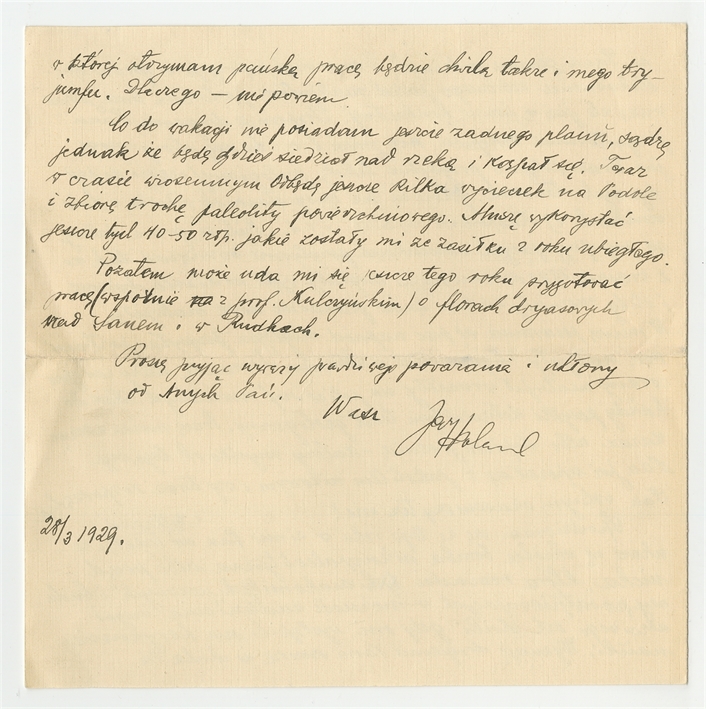 w której otrzymam pańską pracę będzie chwilą także i mego try-
jumfu. Dlaczego – nie powiem.
Co do wakacji nie posiadam jeszcze żadnego planu, sądzę
jednak że będę gdzieś siedział nad rzeką i kąpał się. Teraz
w czasie wiosennym odbędę jeszcze kilka wycieczek na Podole
i zbiorę trochę paleolitu powierzchniowego. Muszę wykorzystać
jeszcze tych 40-50 złp. jakie zostały mi ze zasiłku z roku ubiegłego.
Pozatem może uda mi się jeszcze tego roku przygotować
pracę (wspólnie z prof. Kulczyńskim) o florach dryasowych
nad Sanem i w Rudkach.
Proszę przyjąć wyrazy prawdziwego poważania i ukłony
od Pań.
Wasz Jerzy Poland
28/3 1929.